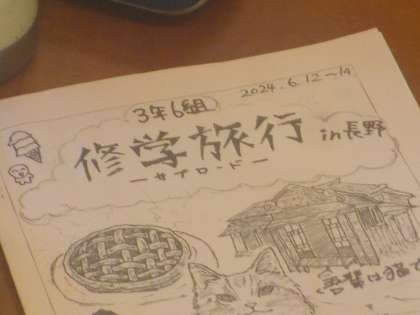 2024.6.12~14
3年6組
修学旅行 in長野
―サイロード―
吾輩は猫で